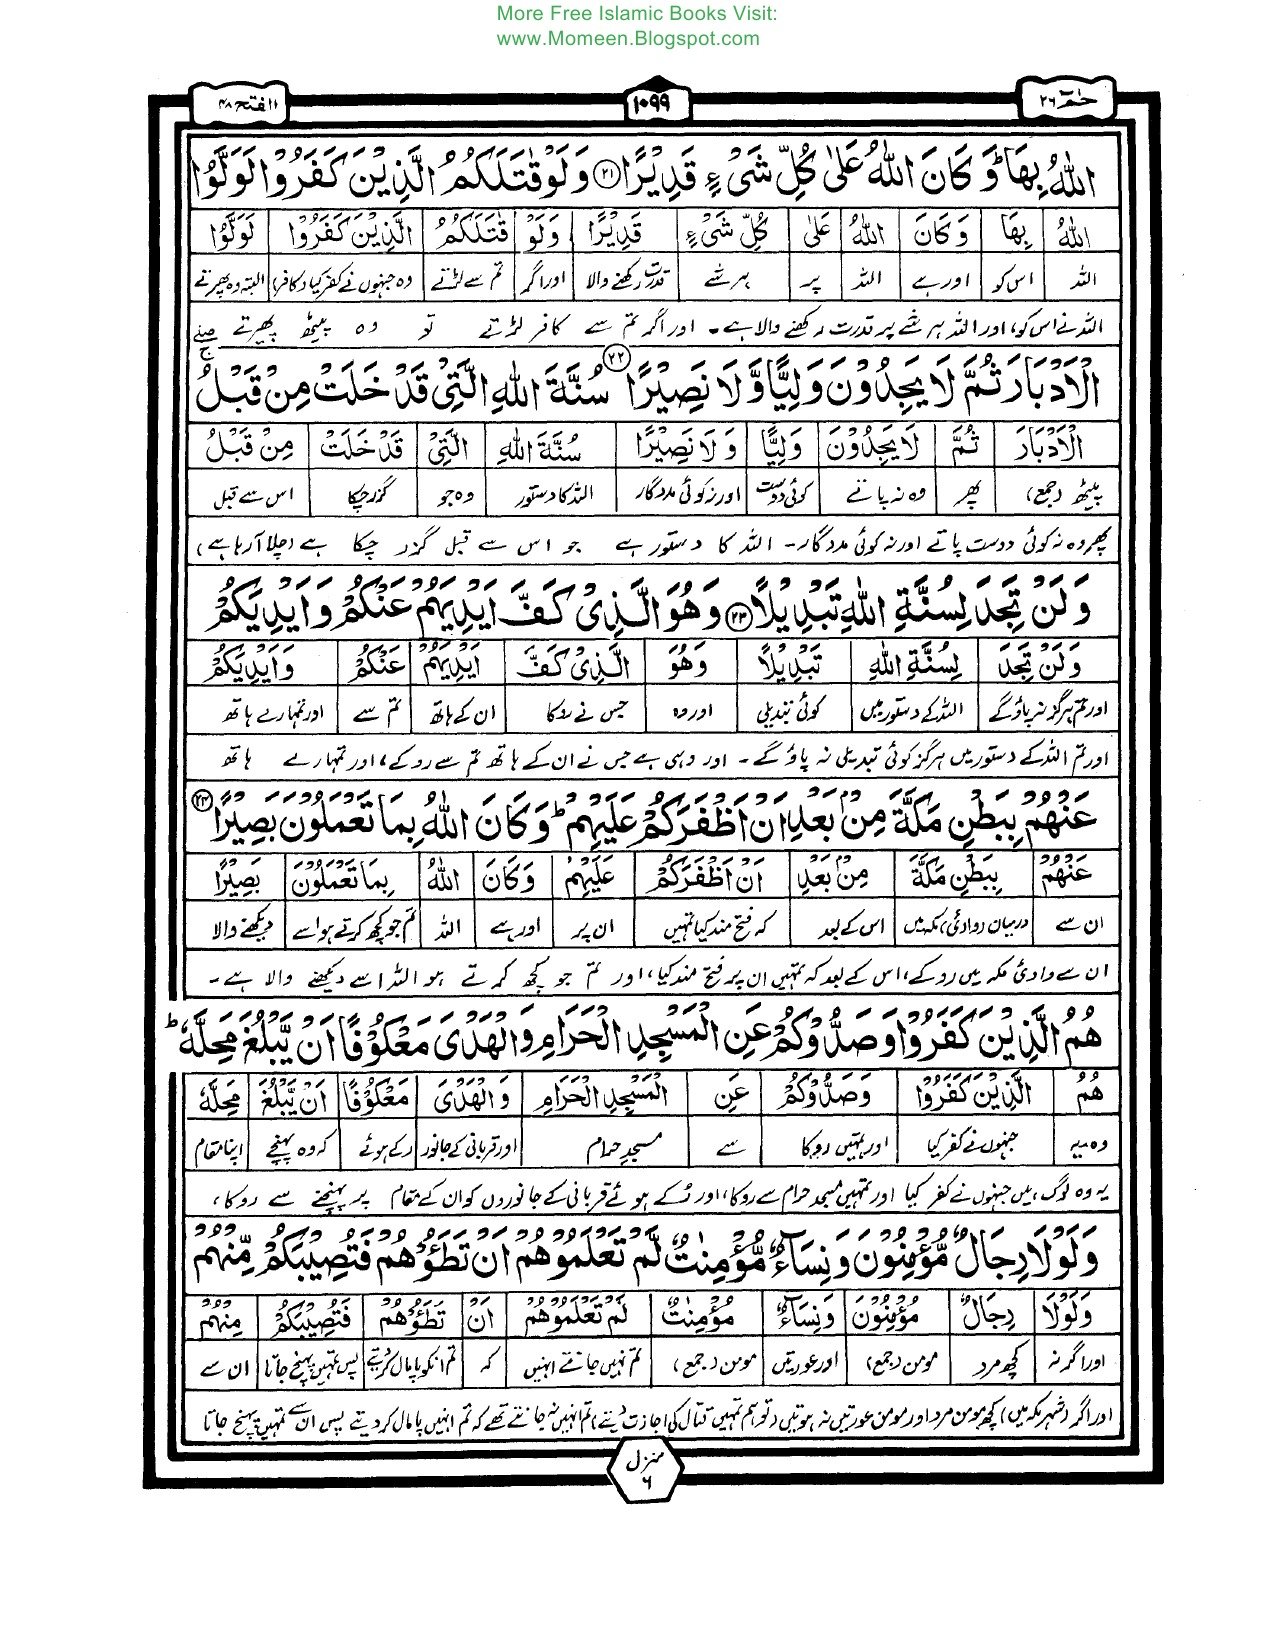 More Free Islamic Books Visit:
www.Momeen.Blogspot.com
حٰمٓ ۲۶
۱۰۹۹
الفتح ۴۸
اللّٰهُ بِهَا ؕ وَ كَانَ اللّٰهُ عَلٰى كُلِّ شَیْءٍ قَدِیْرًا ۝۲۱ وَ لَوْ قٰتَلَكُمُ الَّذِیْنَ كَفَرُوْا لَوَلَّوُا
اللّٰهُ بِهَا وَ كَانَ اللّٰهُ عَلٰى كُلِّ شَیْءٍ قَدِیْرًا وَلَوْ قٰتَلَكُمُ الَّذِیْنَ كَفَرُوْا لَوَلَّوُا
اللہ اس کو اور ہے اللہ پر ہر شے قدرت رکھنے والا اور اگر تم سے لڑتے وہ جنہوں نے کفر کیا (کافر) البتہ وہ پھیرتے
اللہ نے اس کو، اور اللہ ہر شے پر قدرت رکھنے والا ہے۔ اور اگر تم سے کافر لڑتے تو وہ پیٹھ پھیرتے
الْاَدْبَارَ ثُمَّ لَا یَجِدُوْنَ وَلِیًّا وَّ لَا نَصِیْرًا ۝۲۲ سُنَّةَ اللّٰهِ الَّتِیْ قَدْ خَلَتْ مِنْ قَبْلُ ۚ
الْاَدْبَارَ ثُمَّ لَا یَجِدُوْنَ وَلِیًّا وَ لَا نَصِیْرًا سُنَّةَ اللّٰهِ الَّتِیْ قَدْ خَلَتْ مِنْ قَبْلُ
پیٹھ (جمع) پھر وہ نہ پاتے کوئی دوست اور نہ کوئی مددگار اللہ کا دستور وہ جو گزر چکا اس سے قبل
پھر وہ نہ کوئی دوست پاتے اور نہ کوئی مددگار۔ اللہ کا دستور ہے جو اس سے قبل گزر چکا ہے (چلا آرہا ہے)
وَ لَنْ تَجِدَ لِسُنَّةِ اللّٰهِ تَبْدِیْلًا ۝۲۳ وَ هُوَ الَّذِیْ كَفَّ اَیْدِیَهُمْ عَنْكُمْ وَ اَیْدِیَكُمْ
وَ لَنْ تَجِدَ لِسُنَّةِ اللّٰهِ تَبْدِیْلًا وَهُوَ الَّذِیْ كَفَّ اَیْدِیَهُمْ عَنْكُمْ وَاَیْدِیَكُمْ
اور تم ہرگز نہ پاؤ گے اللہ کے دستور میں کوئی تبدیلی اور وہ جس نے روکا ان کے ہاتھ تم سے اور تمہارے ہاتھ
اور تم اللہ کے دستور میں ہرگز کوئی تبدیلی نہ پاؤ گے۔ اور وہی ہے جس نے ان کے ہاتھ تم سے روکے، اور تمہارے ہاتھ
عَنْهُمْ بِبَطْنِ مَكَّةَ مِنْۢ بَعْدِ اَنْ اَظْفَرَكُمْ عَلَیْهِمْ ؕ وَ كَانَ اللّٰهُ بِمَا تَعْمَلُوْنَ بَصِیْرًا ۝۲۴
عَنْهُمْ بِبَطْنِ مَكَّةَ مِنْۢ بَعْدِ اَنْ اَظْفَرَكُمْ عَلَیْهِمْ وَ كَانَ اللّٰهُ بِمَا تَعْمَلُوْنَ بَصِیْرًا
ان سے درمیان (وادیٔ) مکہ میں اس کے بعد کہ فتح مند کیا تمہیں ان پر اور ہے اللہ تم جو کچھ کرتے ہو اسے دیکھنے والا
ان سے وادیٔ مکہ میں روکے، اس کے بعد کہ تمہیں ان پر فتح مند کیا، اور تم جو کچھ کرتے ہو اللہ اسے دیکھنے والا ہے۔
هُمُ الَّذِیْنَ كَفَرُوْا وَ صَدُّوْكُمْ عَنِ الْمَسْجِدِ الْحَرَامِ وَ الْهَدْیَ مَعْكُوْفًا اَنْ یَّبْلُغَ مَحِلَّهٗ ؕ
هُمُ الَّذِیْنَ كَفَرُوْا وَصَدُّوْكُمْ عَنِ الْمَسْجِدِ الْحَرَامِ وَ الْهَدْیَ مَعْكُوْفًا اَنْ یَّبْلُغَ مَحِلَّهٗ
وہ یہ جنہوں نے کفر کیا اور تمہیں روکا سے مسجد حرام اور قربانی کے جانور رکے ہوئے کہ وہ پہنچے اپنا مقام
یہ وہ لوگ ہیں جنہوں نے کفر کیا اور تمہیں مسجد حرام سے روکا، اور رُکے ہوئے قربانی کے جانوروں کو ان کے مقام پر پہنچنے سے روکا،
وَ لَوْ لَا رِجَالٌ مُّؤْمِنُوْنَ وَ نِسَآءٌ مُّؤْمِنٰتٌ لَّمْ تَعْلَمُوْهُمْ اَنْ تَطَـُٔوْهُمْ فَتُصِیْبَكُمْ مِّنْهُمْ
وَلَوْلَا رِجَالٌ مُؤْمِنُوْنَ وَنِسَآءٌ مُؤْمِنٰتٌ لَمْ تَعْلَمُوْهُمْ اَنْ تَطَـُٔوْهُمْ فَتُصِیْبَكُمْ مِنْهُمْ
اور اگر نہ کچھ مرد مومن (جمع) اور عورتیں مومن (جمع) تم نہیں جانتے انہیں کہ تم انکو پامال کر دیتے پس تمہیں پہنچ جاتا ان سے
اور اگر (شہر مکہ میں) کچھ مومن مرد اور مومن عورتیں نہ ہوتیں (تو ہم تمہیں قتال کی اجازت دیتے) تم انہیں نہ جانتے تھے کہ تم انہیں پامال کر دیتے پس ان سے تمہیں پہنچ جاتا
منزل
۶